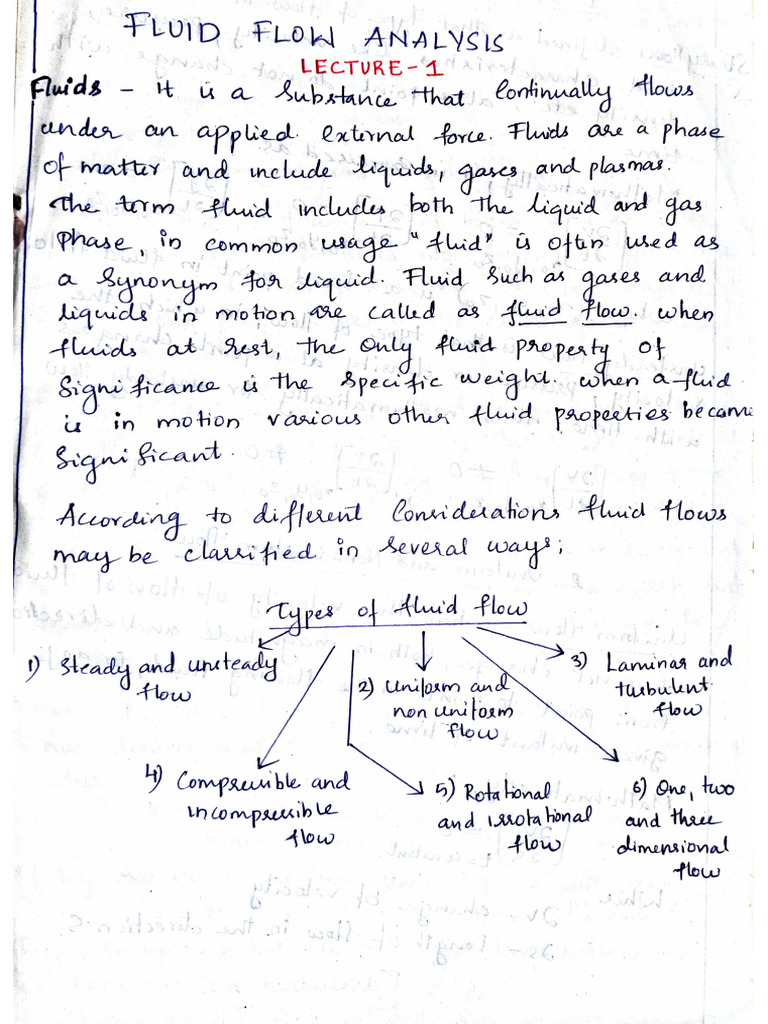 FLUID FLOW ANALYSIS
LECTURE-1
Fluids - It is a substance that continually flows
under an applied external force. Fluids are a phase
of matter and include liquids, gases and plasmas.
The term fluid includes both the liquid and gas
phase, in common usage "fluid" is often used as
a synonym for liquid. Fluid such as gases and
liquids in motion are called as fluid flow. when
fluids at rest, the only fluid property of
significance is the specific weight. when a fluid
is in motion various other fluid properties become
significant.
According to different considerations fluid flows
may be classified in several ways;
Types of fluid flow
1) Steady and unsteady
flow
2) Uniform and
non uniform
flow
3) Laminar and
turbulent
flow
4) Compressible and
incompressible
flow
5) Rotational
and irrotational
flow
6) One, two
and three
dimensional
flow